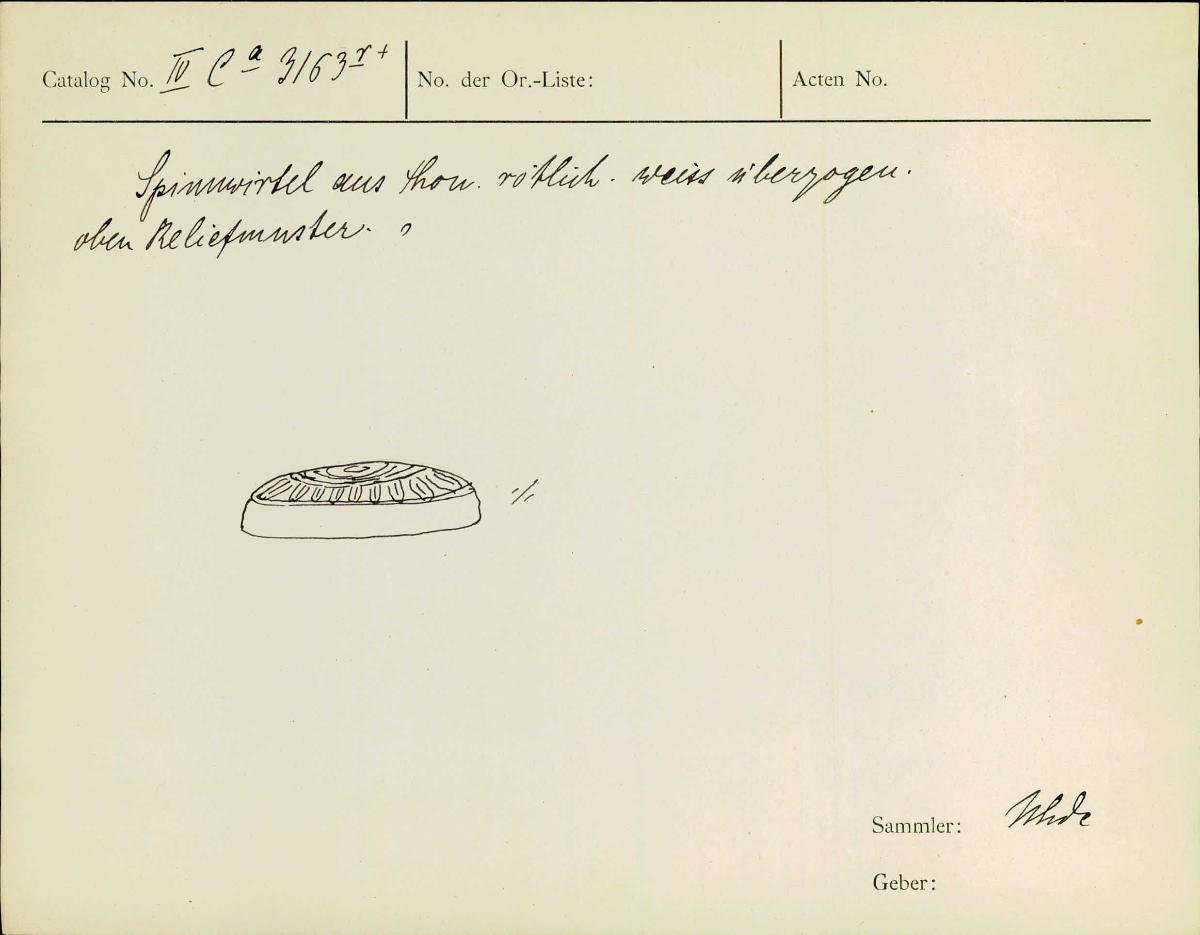 Catalog No. IV Ca 3163 r+
No. der Or.-Liste:
Acten No.
Spinnwirtel aus Thon. rötlich. weiss überzogen.
oben Reliefmuster.
1/1
Sammler: Uhde
Geber: